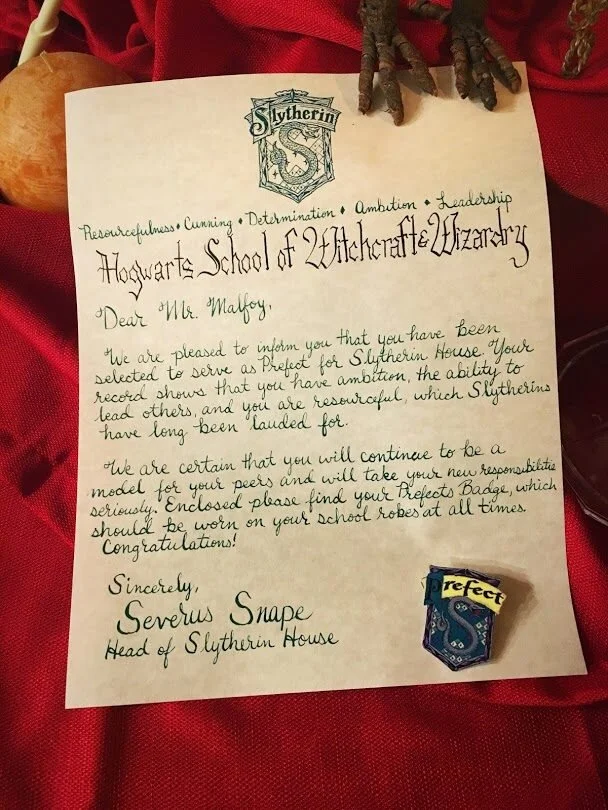 Slytherin
Resourcefulness • Cunning • Determination • Ambition • Leadership
Hogwarts School of Witchcraft & Wizardry
Dear Mr. Malfoy,
We are pleased to inform you that you have been
selected to serve as Prefect for Slytherin House. Your
record shows that you have ambition, the ability to
lead others, and you are resourceful, which Slytherins
have long been lauded for.
We are certain that you will continue to be a
model for your peers and will take your new responsibilities
seriously. Enclosed please find your Prefects Badge, which
should be worn on your school robes at all times.
Congratulations!
Sincerely,
Severus Snape
Head of Slytherin House
Prefect